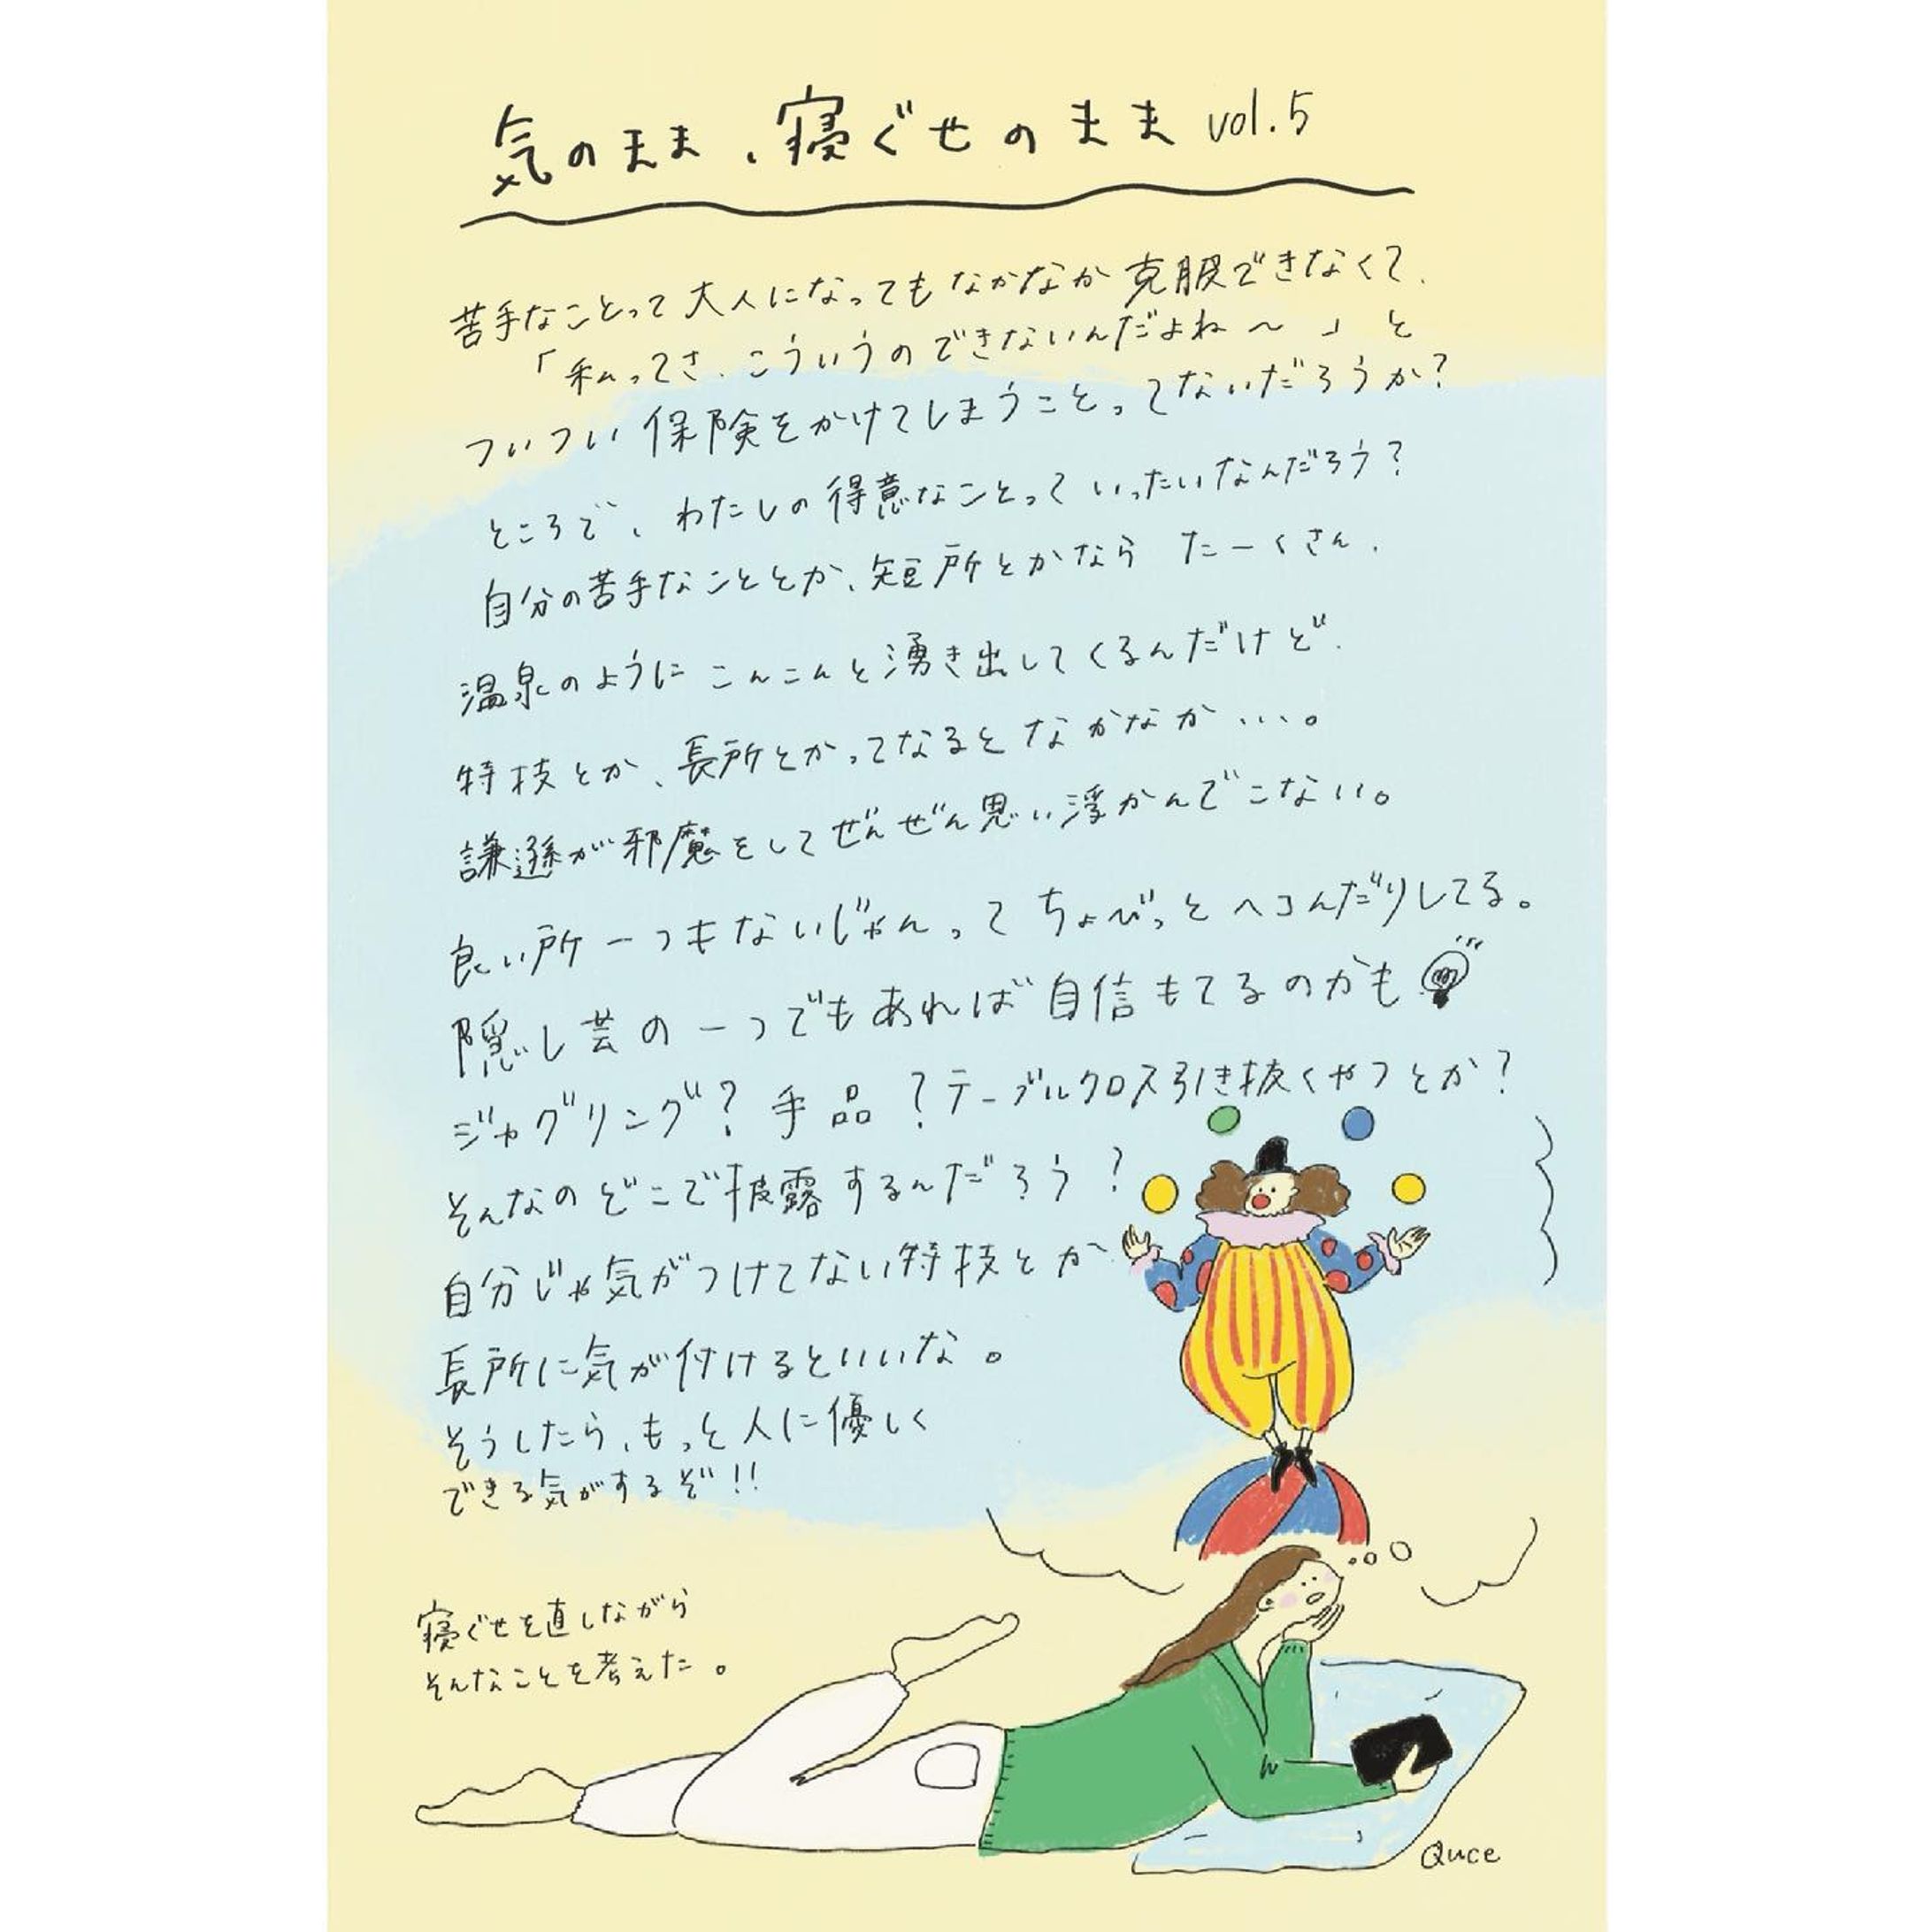 気のまま、寝ぐせのまま vol.5
苦手なことって大人になってもなかなか克服できなくて、
「私ってさ、こういうのできないんだよね〜」と
ついつい保険をかけてしまうことってないだろうか?
ところで、わたしの得意なことっていったいなんだろう?
自分の苦手なこととか、短所とかなら たーくさん、
温泉のようにこんこんと湧き出してくるんだけど、
特技とか、長所とかってなるとなかなか...。
謙遜が邪魔をしてぜんぜん思い浮かんでこない。
良い所一つもないじゃんって ちょびっとヘコんだりしてる。
隠し芸の一つでもあれば自信もてるのかも
ジャグリング?手品?テーブルクロス引き抜くやつとか?
そんなのどこで披露するんだろう?
自分じゃ気がつけてない特技とか
長所に気が付けるといいな。
そうしたら、もっと人に優しく
できる気がするぞ!!
寝ぐせを直しながら
そんなことを考えた。
Quce